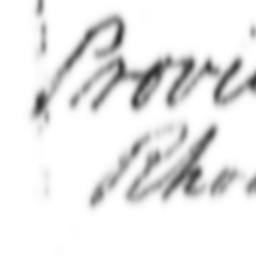 Provi
Rho